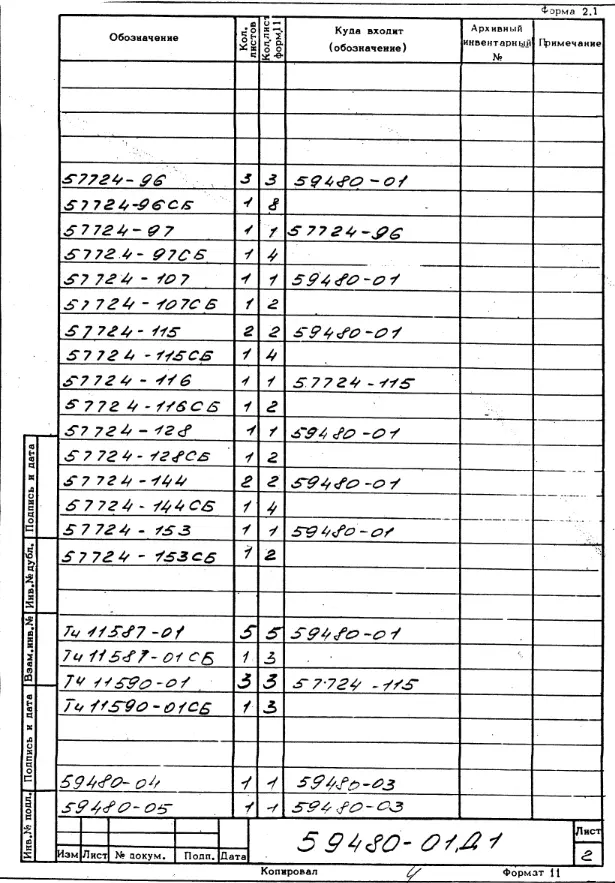 Форма 2.1
Обозначение Кол. листов Кол.лист форм.11 Куда входит (обозначение) Архивный инвентарный № Примечание
57724-96 3 3 59480-01
57724-96СБ 1 8
57724-97 1 1 57724-96
57724-97СБ 1 4
57724-107 1 1 59480-01
57724-107СБ 1 2
57724-115 2 2 59480-01
57724-115СБ 1 4
57724-116 1 1 57724-115
57724-116СБ 1 2
57724-128 1 1 59480-01
57724-128СБ 1 2
57724-144 2 2 59480-01
57724-144СБ 1 4
57724-153 1 1 59480-01
57724-153СБ 1 2
Тч11587-01 5 5 59480-01
Тч11587-01СБ 1 3
Тч11590-01 3 3 57724-115
Тч11590-01СБ 1 3
59480-04 1 1 59480-03
59480-05 1 1 59480-03
Подпись и дата
Инв.№ дубл.
Взам.инв.№
Подпись и дата
Инв.№ подл.
59480-01Д1
Лист
2
Изм Лист № докум. Подп. Дата
Копировал
Формат 11